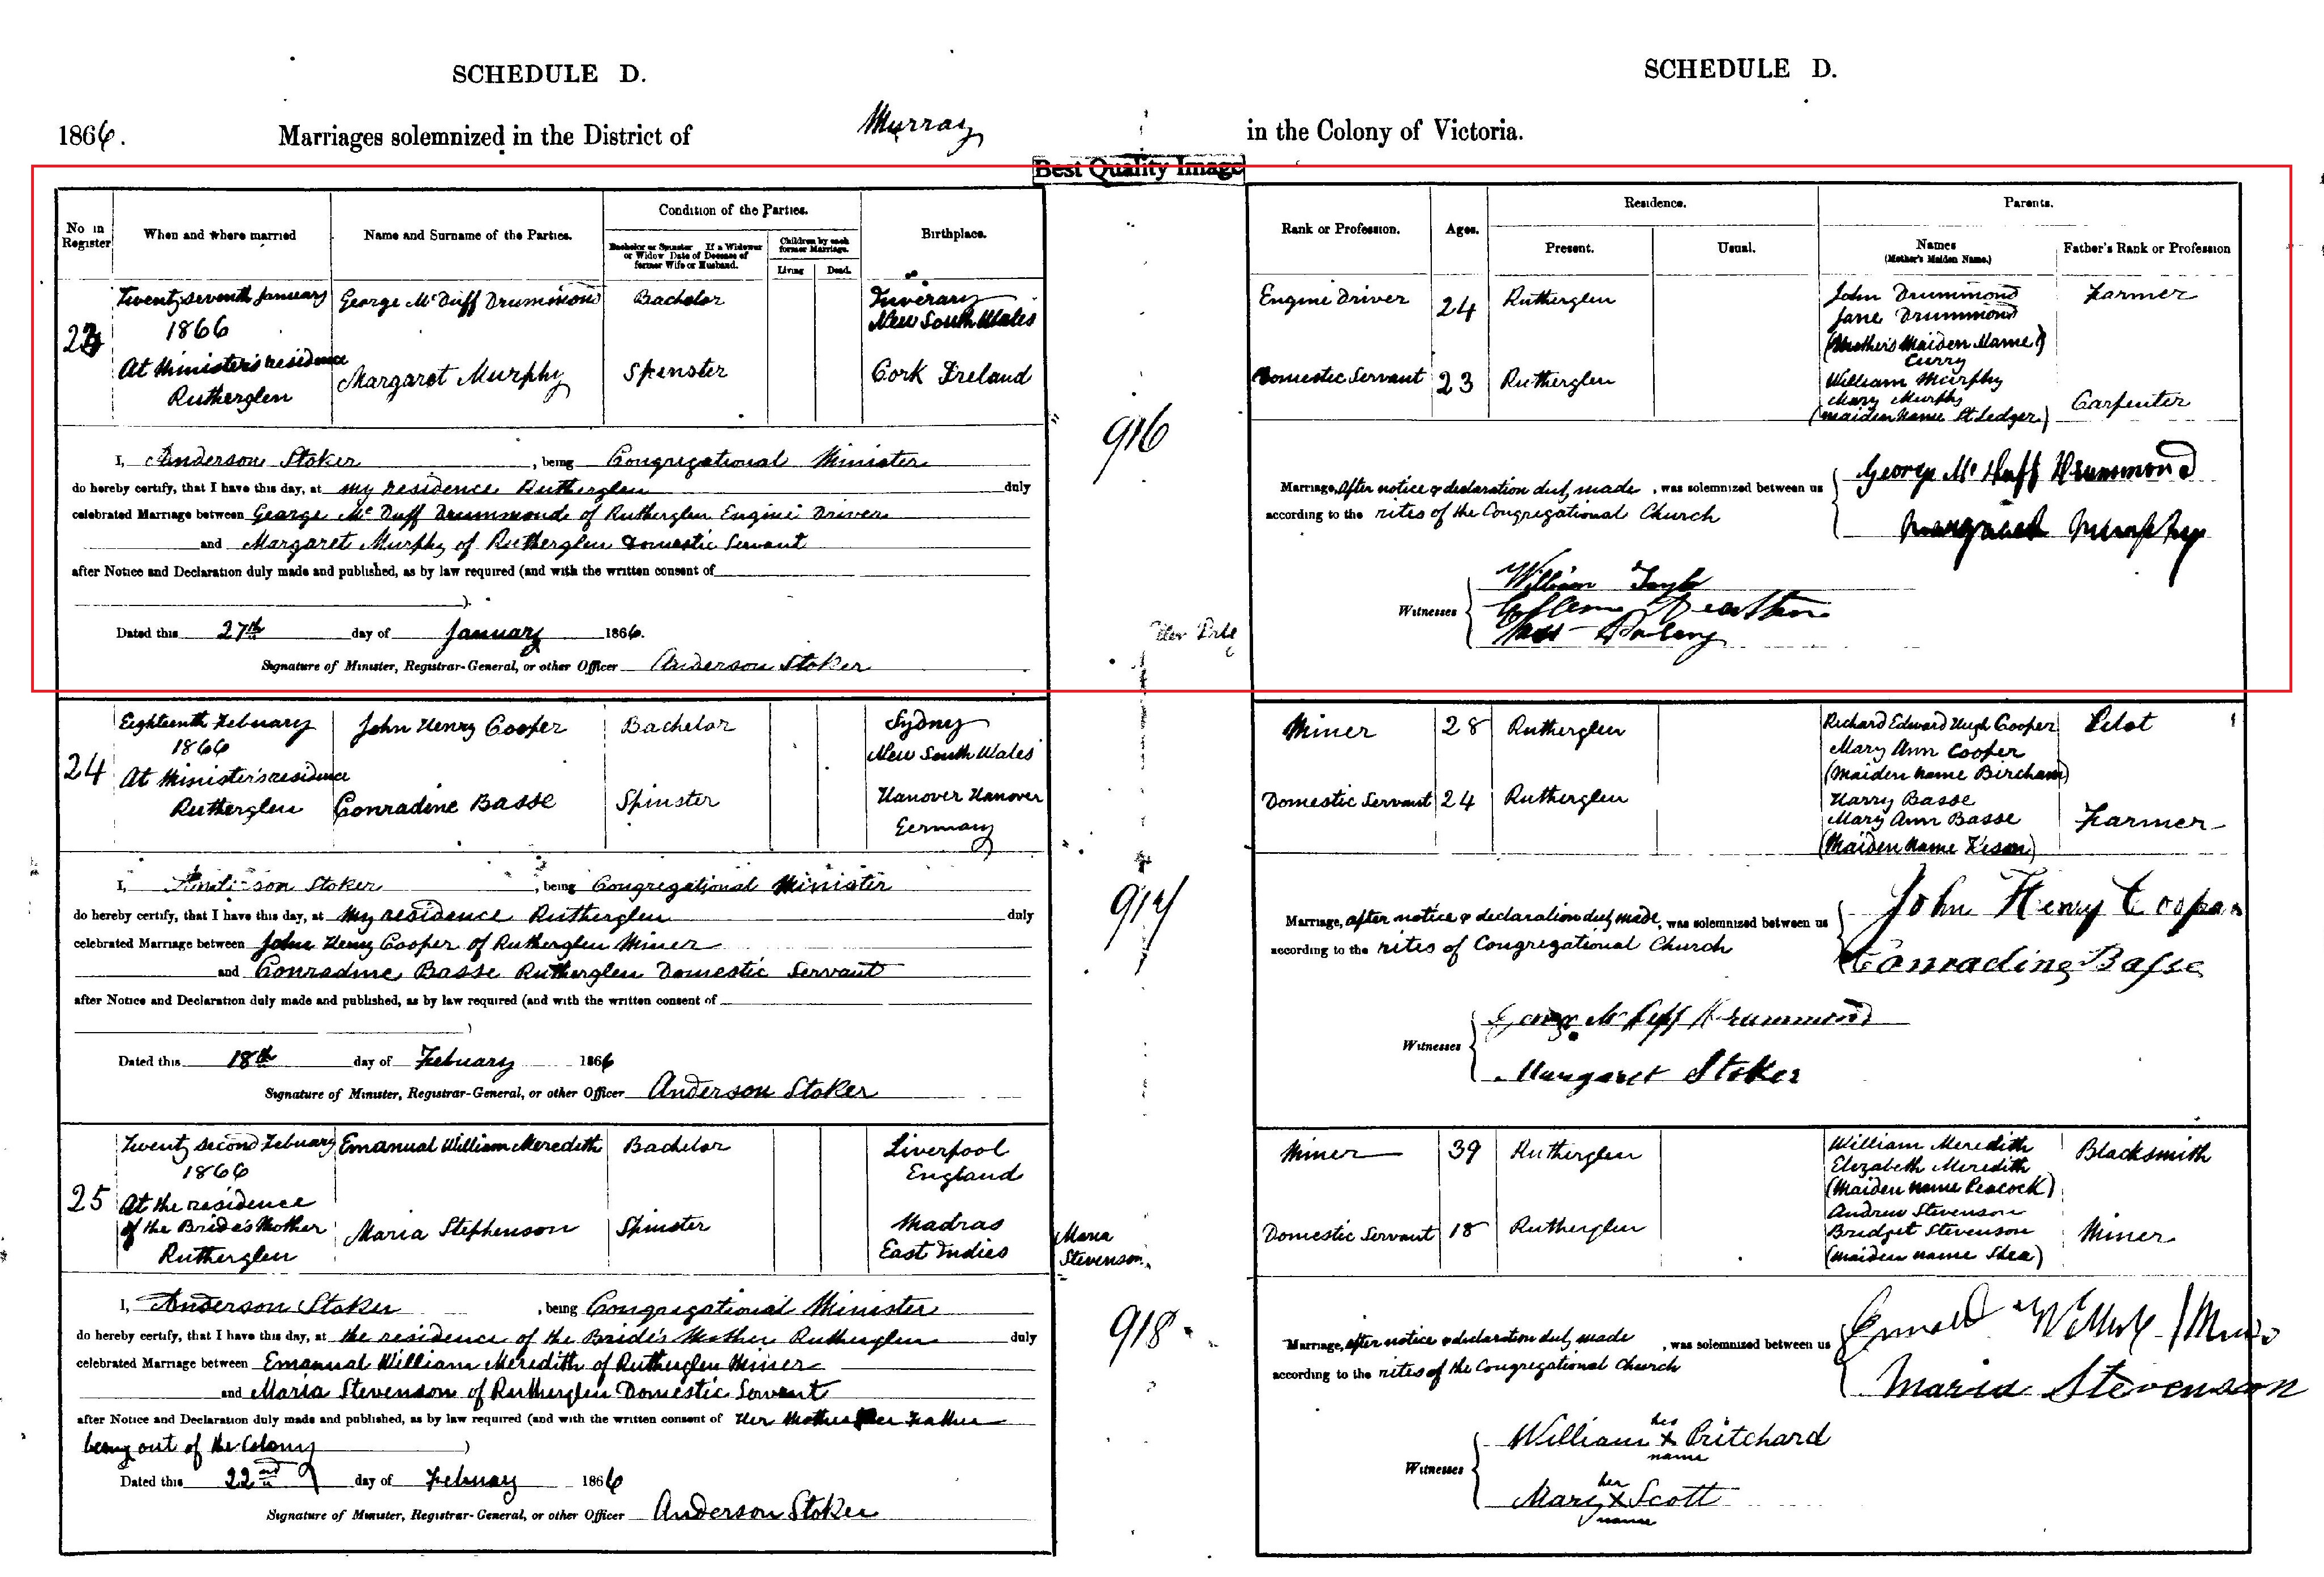 SCHEDULE D.
SCHEDULE D.
1866. Marriages solemnized in the District of Murray in the Colony of Victoria.
Best Quality Image
No in Register
When and where married
Name and Surname of the Parties.
Condition of the Parties.
Bachelor or Spinster. If a Widower or Widow Date of Decease of former Wife or Husband.
Children by each former Marriage.
Living
Dead.
Birthplace.
Rank or Profession.
Ages.
Residence.
Present.
Usual.
Parents.
Names
(Mother's Maiden Name.)
Father's Rank or Profession
23
Twenty seventh January
1866
At Minister's residence
Rutherglen
George Mc Duff Drummond
Margaret Murphy
Bachelor
Spinster
Inverary
New South Wales
Cork Ireland
Engine Driver
24
Rutherglen
John Drummond
Jane Drummond
(Mother's Maiden Name)
Curry
Farmer
Domestic Servant
23
Rutherglen
William Murphy
Mary Murphy
(maiden name St Ledger)
Carpenter
I, Anderson Stoker, being Congregational Minister
do hereby certify, that I have this day, at my residence Rutherglen duly
celebrated Marriage between George Mc Duff Drummond of Rutherglen Engine Driver
and Margaret Murphy of Rutherglen Domestic Servant
after Notice and Declaration duly made and published, as by law required (and with the written consent of
).
Dated this 27th day of January 1866.
Signature of Minister, Registrar-General, or other Officer Anderson Stoker
916
Marriage, after notice & declaration duly made, was solemnized between us
according to the rites of the Congregational Church
George Mc Duff Drummond
Margaret Murphy
Witnesses
William
24
Eighteenth Febuary
1866
At Minister's residence
Rutherglen
John Henry Cooper
Conradine Basse
Bachelor
Spinster
Sydny
New South Wales
Hanover Hanover
Germany
Miner
28
Rutherglen
Richard Edward Hugh Cooper
Mary Ann Cooper
(Maiden name Bircham)
Pilot
Domestic Servant
24
Rutherglen
Harry Basse
Mary Ann Basse
(Maiden name)
Farmer
I, Anderson Stoker, being Congregational Minister
do hereby certify, that I have this day, at My residence Rutherglen duly
celebrated Marriage between John Henry Cooper of Rutherglen Miner
and Conradine Basse Rutherglen Domestic Servant
after Notice and Declaration duly made and published, as by law required (and with the written consent of
)
Dated this 18th day of Febuary 1866
Signature of Minister, Registrar-General, or other Officer Anderson Stoker
917
Marriage, after notice & declaration duly made, was solemnized between us
according to the rites of Congregational Church
John Henry Cooper
Conradine Basse
Witnesses
George Mc Duff Drummond
Margaret Stoker
25
Twenty second Febuary
1866
At the residence
of the Bride's Mother
Rutherglen
Emanual William Meredith
Maria Stephenson
Bachelor
Spinster
Liverpool
England
Madras
East Indies
Maria
Stevenson
Miner
39
Rutherglen
William Meredith
Elizabeth Meredith
(Maiden name Peacock)
Blacksmith
Domestic Servant
18
Rutherglen
Andrew Stevenson
Bridget Stevenson
(maiden name Shea)
Miner
I, Anderson Stoker, being Congregational Minister
do hereby certify, that I have this day, at the residence of the Bride's Mother Rutherglen duly
celebrated Marriage between Emanual William Meredith of Rutherglen Miner
and Maria Stevenson of Rutherglen Domestic Servant
after Notice and Declaration duly made and published, as by law required (and with the written consent of Her Mother Her Father
being out of the Colony)
Dated this 22nd day of Febuary 1866
Signature of Minister, Registrar-General, or other Officer Anderson Stoker
918
Marriage, after notice & declaration duly made, was solemnized between us
according to the rites of the Congregational Church
Maria Stevenson
Witnesses
his
William X Pritchard
name
her
Mary X Scott
name